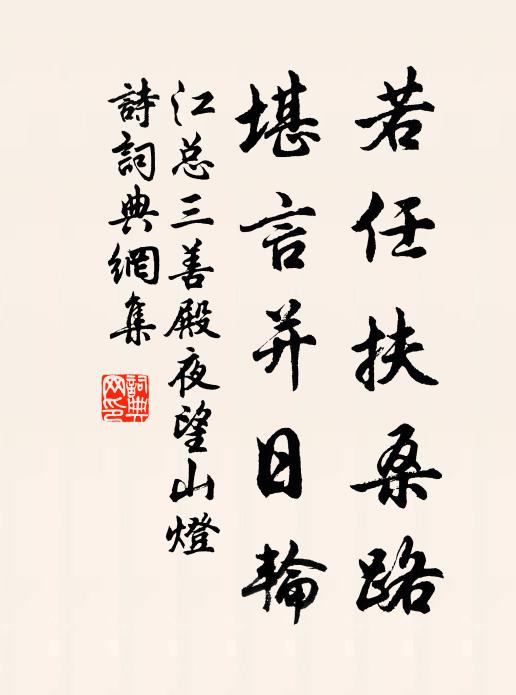 若任扶桑路
堪言并日輪
江总三善殿夜望山燈
詩詞典網集
詞典網印